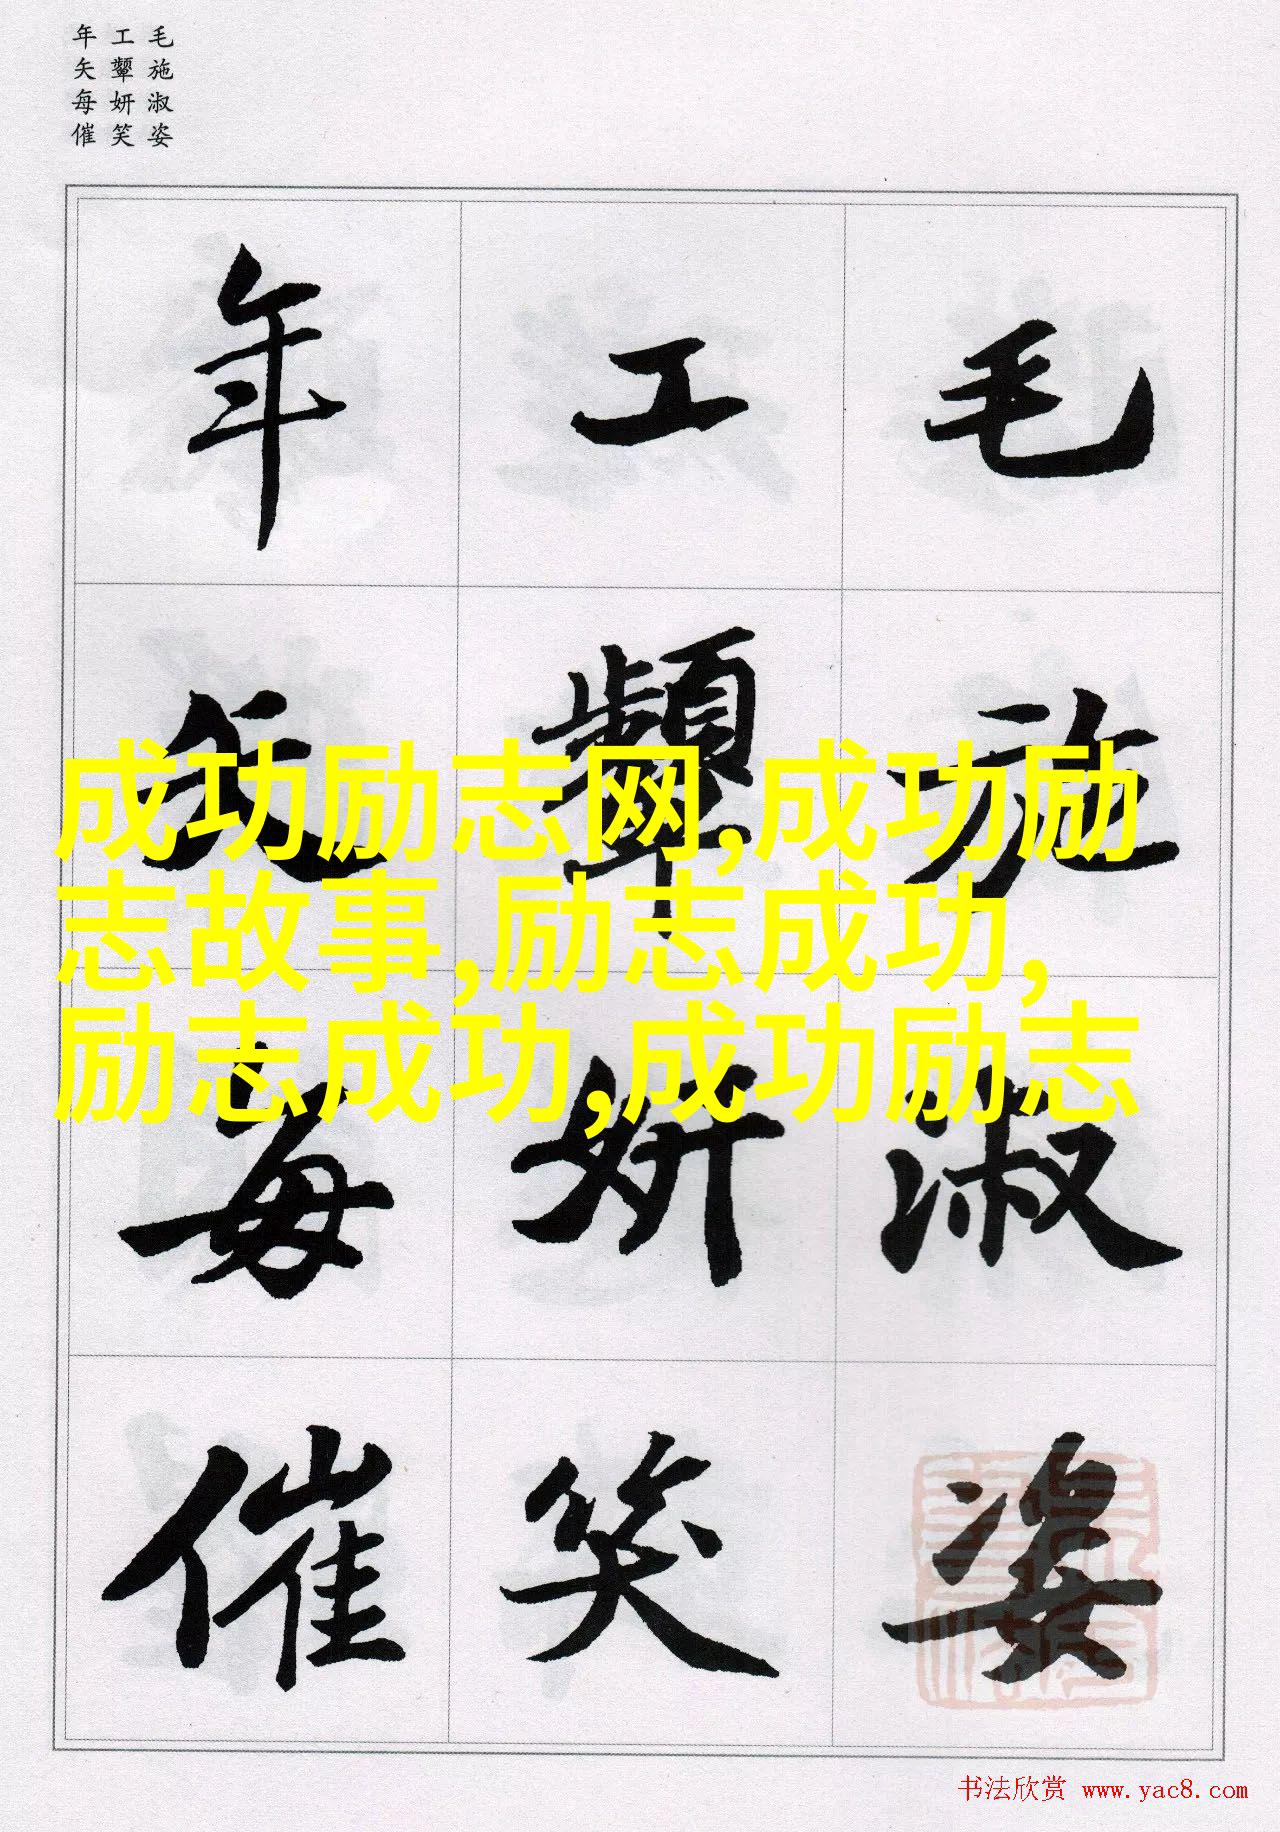 毛施淑姿
工颦妍笑
年矢每催
毛施淑姿
工颦妍笑
年矢每催
成功励志网,成功励
志故事,励志成功,
励志成功,成功励志
书法欣赏 www.yac8.com